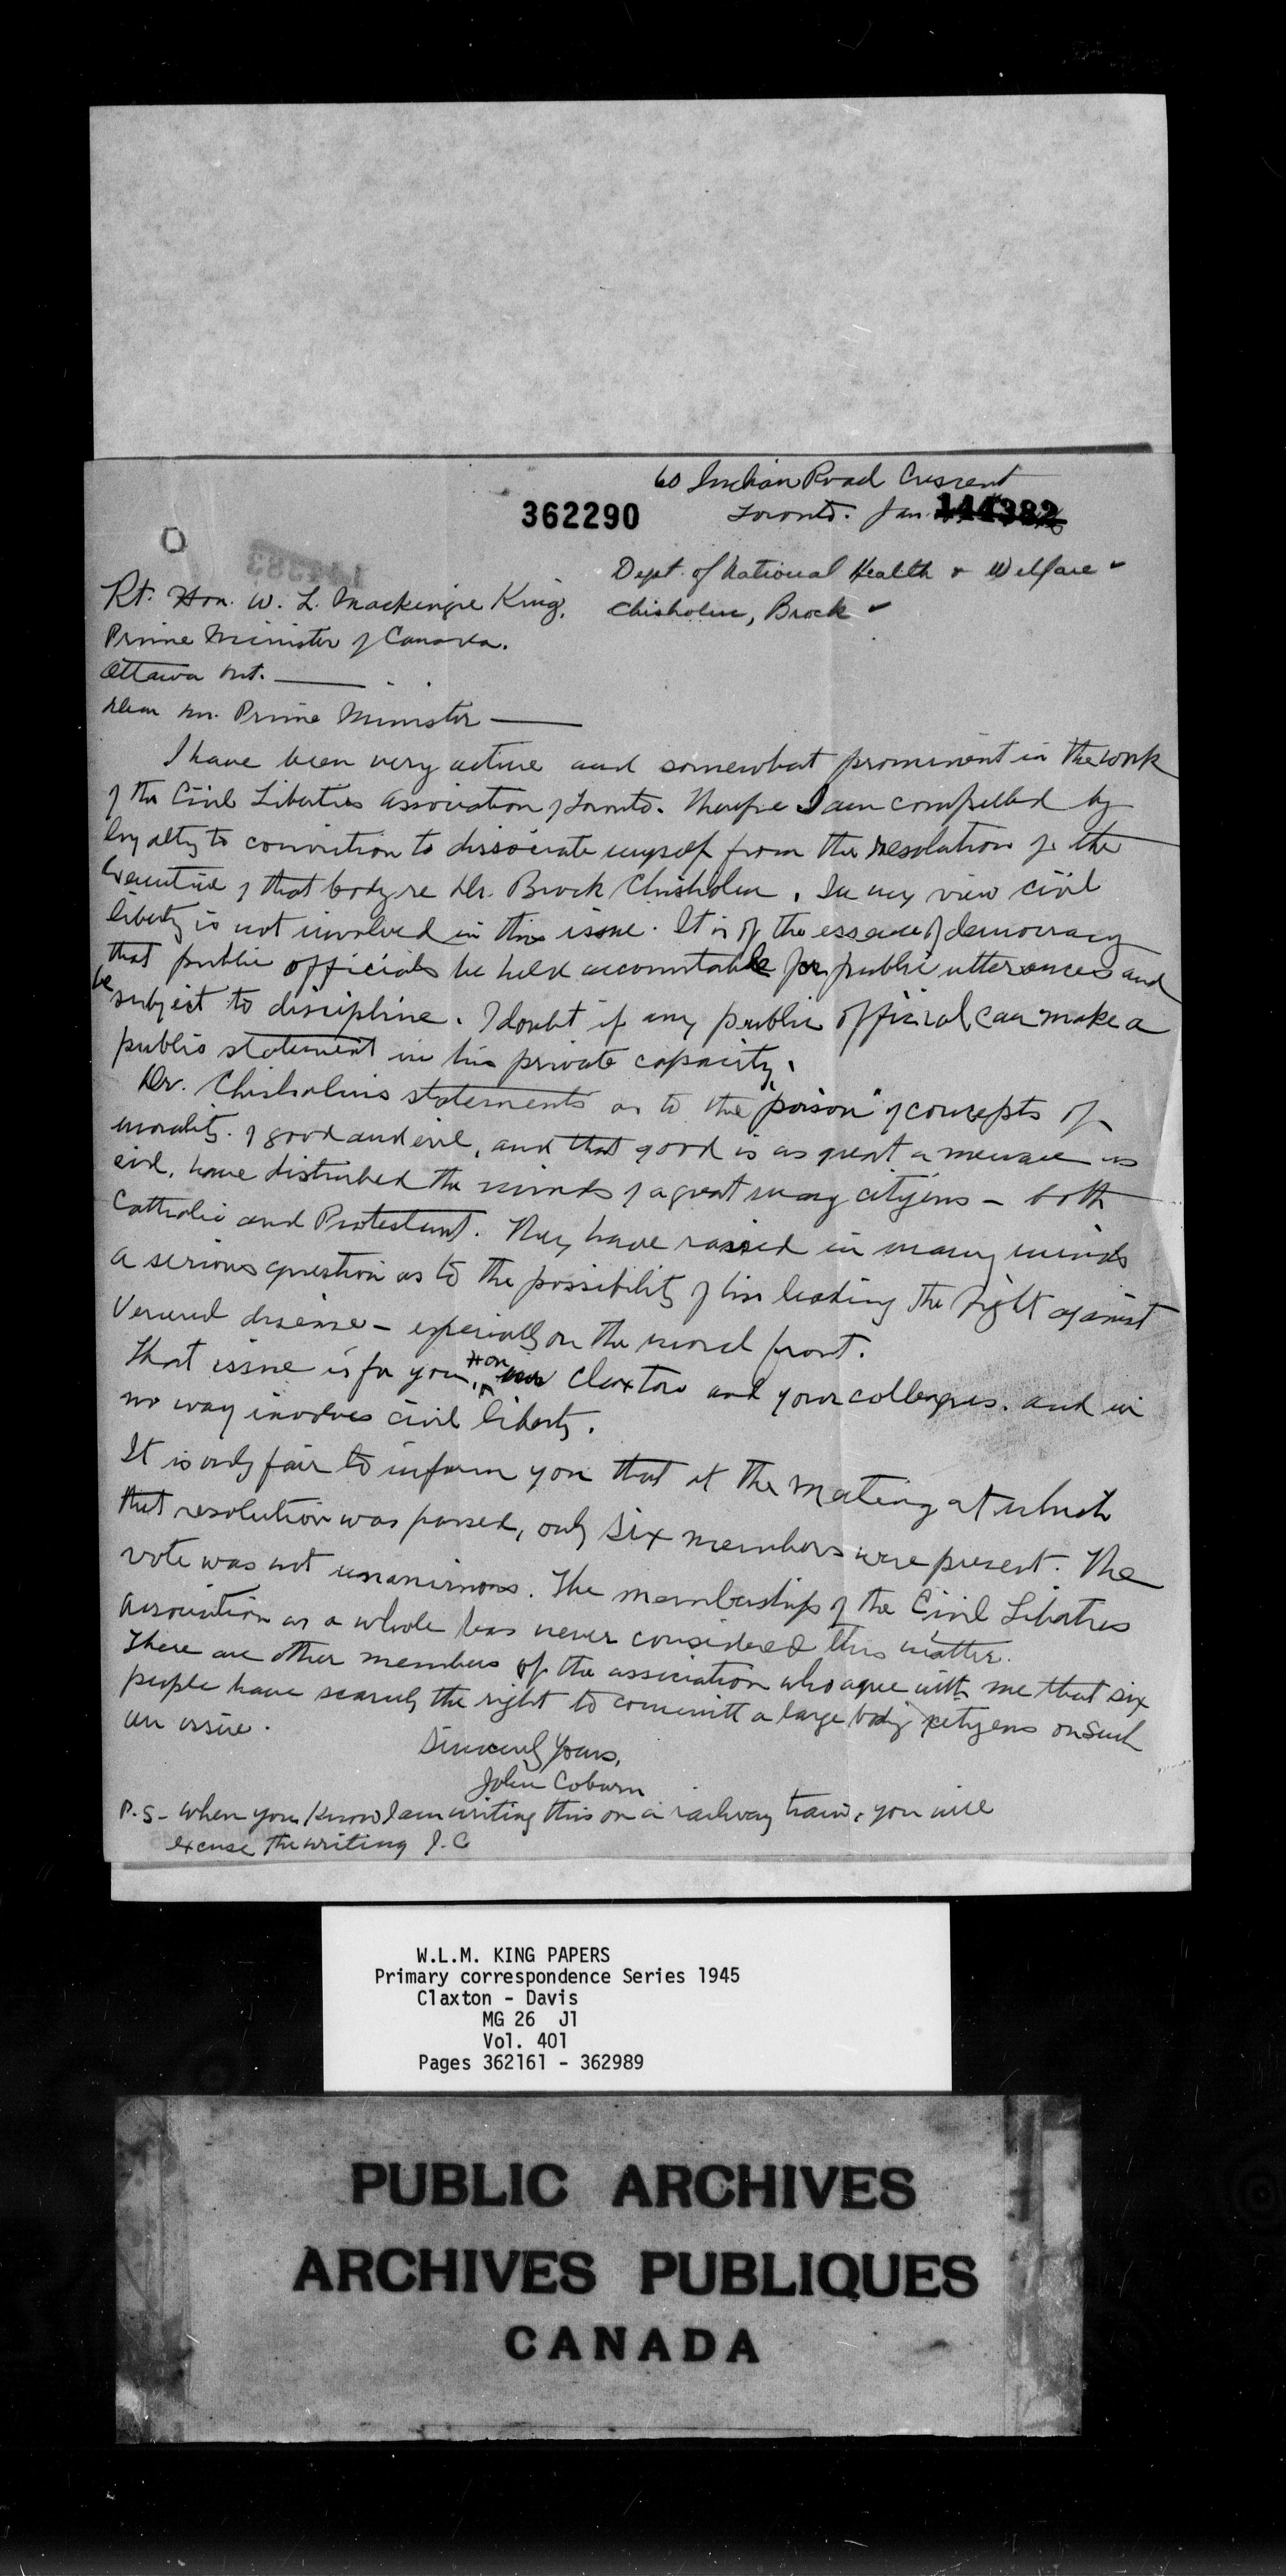 60 Indian Road Crescent
362290
Toronto. Jan. 144382
Dept. of National Health & Welfare ✓
Rt. Hon. W. L. Mackenzie King,
Chisholm, Brock ✓
Prime Minister of Canada.
Ottawa Ont. —
Dear Mr. Prime Minister —
I have been very active and somewhat prominent in the work
of the Civil Liberties Association of Toronto. Therefore I am compelled by
loyalty to conviction to dissociate myself from the resolution of the
Executive of that body re Dr. Brock Chisholm. In my view civil
liberty is not involved in this issue. It is of the essence of democracy
that public officials be held accountable for public utterances and
be subject to discipline. I doubt if any public official can make a
public statement in his private capacity.
Dr. Chisholm's statements as to the "poison" of concepts of
morality. of good and evil, and that good is as great a menace as
evil, have disturbed the minds of a great many citizens – both
Catholic and Protestant. They have raised in many minds
a serious question as to the possibility of his leading the fight against
Venereal disease – especially on the moral front.
That issue is for you, Hon Claxton and your colleagues. and in
no way involves civil liberty.
It is only fair to inform you that at the meeting at which
that resolution was passed, only six members were present. The
vote was not unanimous. The membership of the Civil Liberties
Association as a whole has never considered this matter.
There are other members of the association who agree with me that six
people have scarcely the right to committ a large body citizens on such
an issue.
Sincerely Yours,
John Coburn
P.S – When you know I am writing this on a railway train, you will
excuse the writing J.C
W.L.M. KING PAPERS
Primary correspondence Series 1945
Claxton - Davis
MG 26 J1
Vol. 401
Pages 362161 - 362989
PUBLIC ARCHIVES
ARCHIVES PUBLIQUES
CANADA